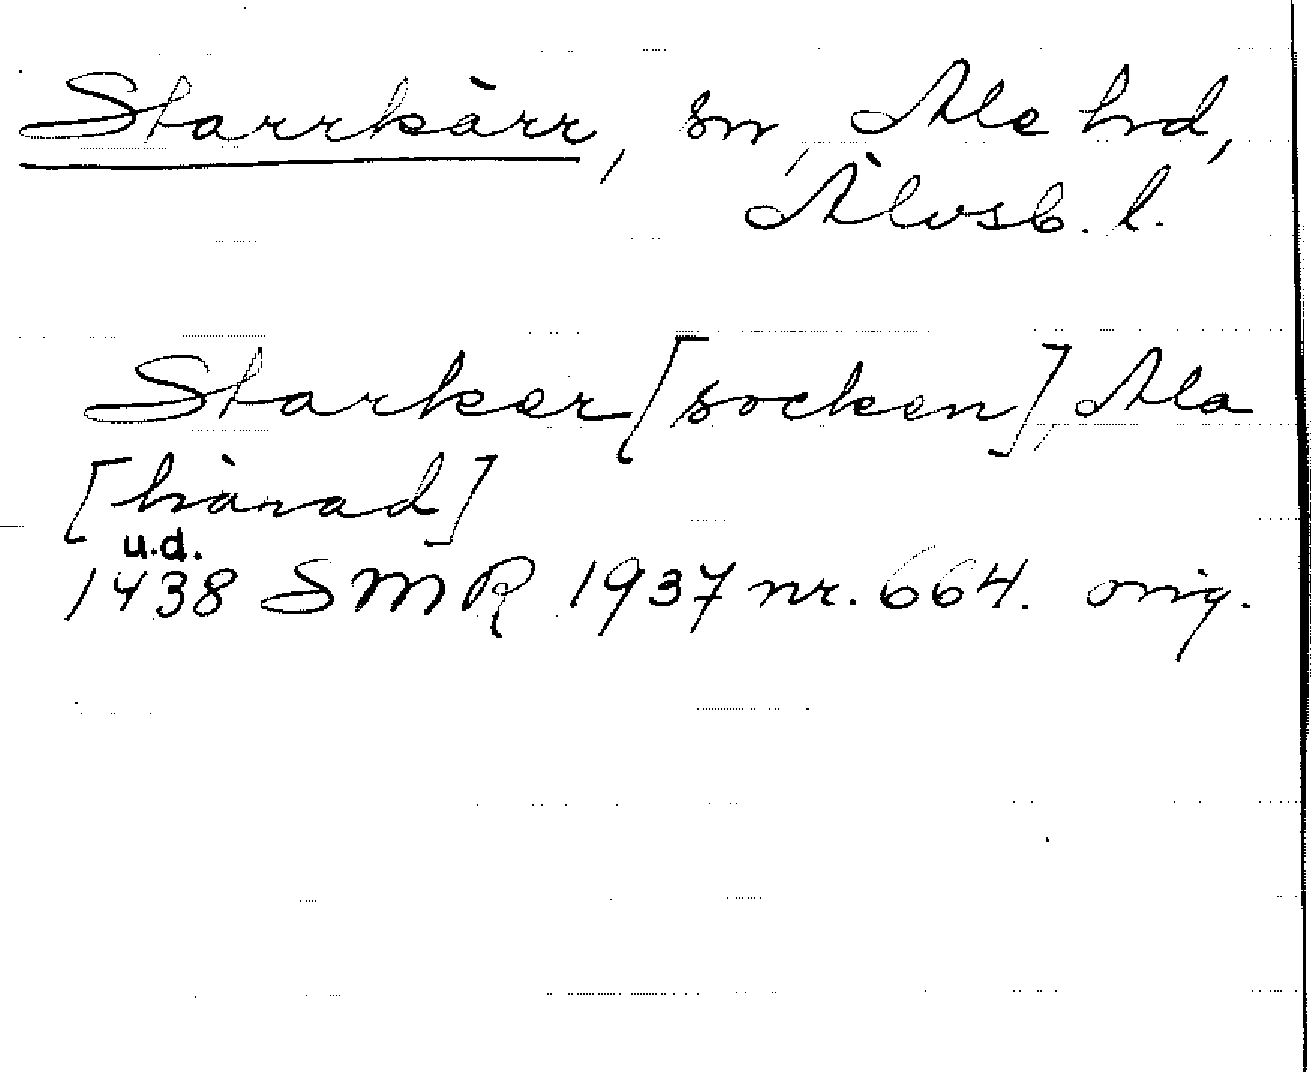 Starrkärr, sn, Ale hd,
Älvsb. l.
Starker [socken], Ala
[härad]
u.d.
1438 SMR 1937 nr. 664. orig.